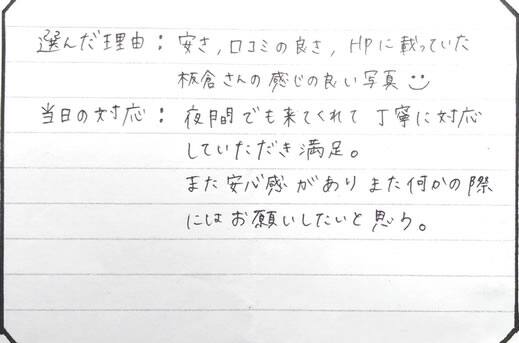 選んだ理由：安さ，口コミの良さ，HPに載っていた
板倉さんの感じの良い写真
当日の対応：夜間でも来てくれて丁寧に対応
していただき満足。
また安心感がありまた何かの際
にはお願いしたいと思う。